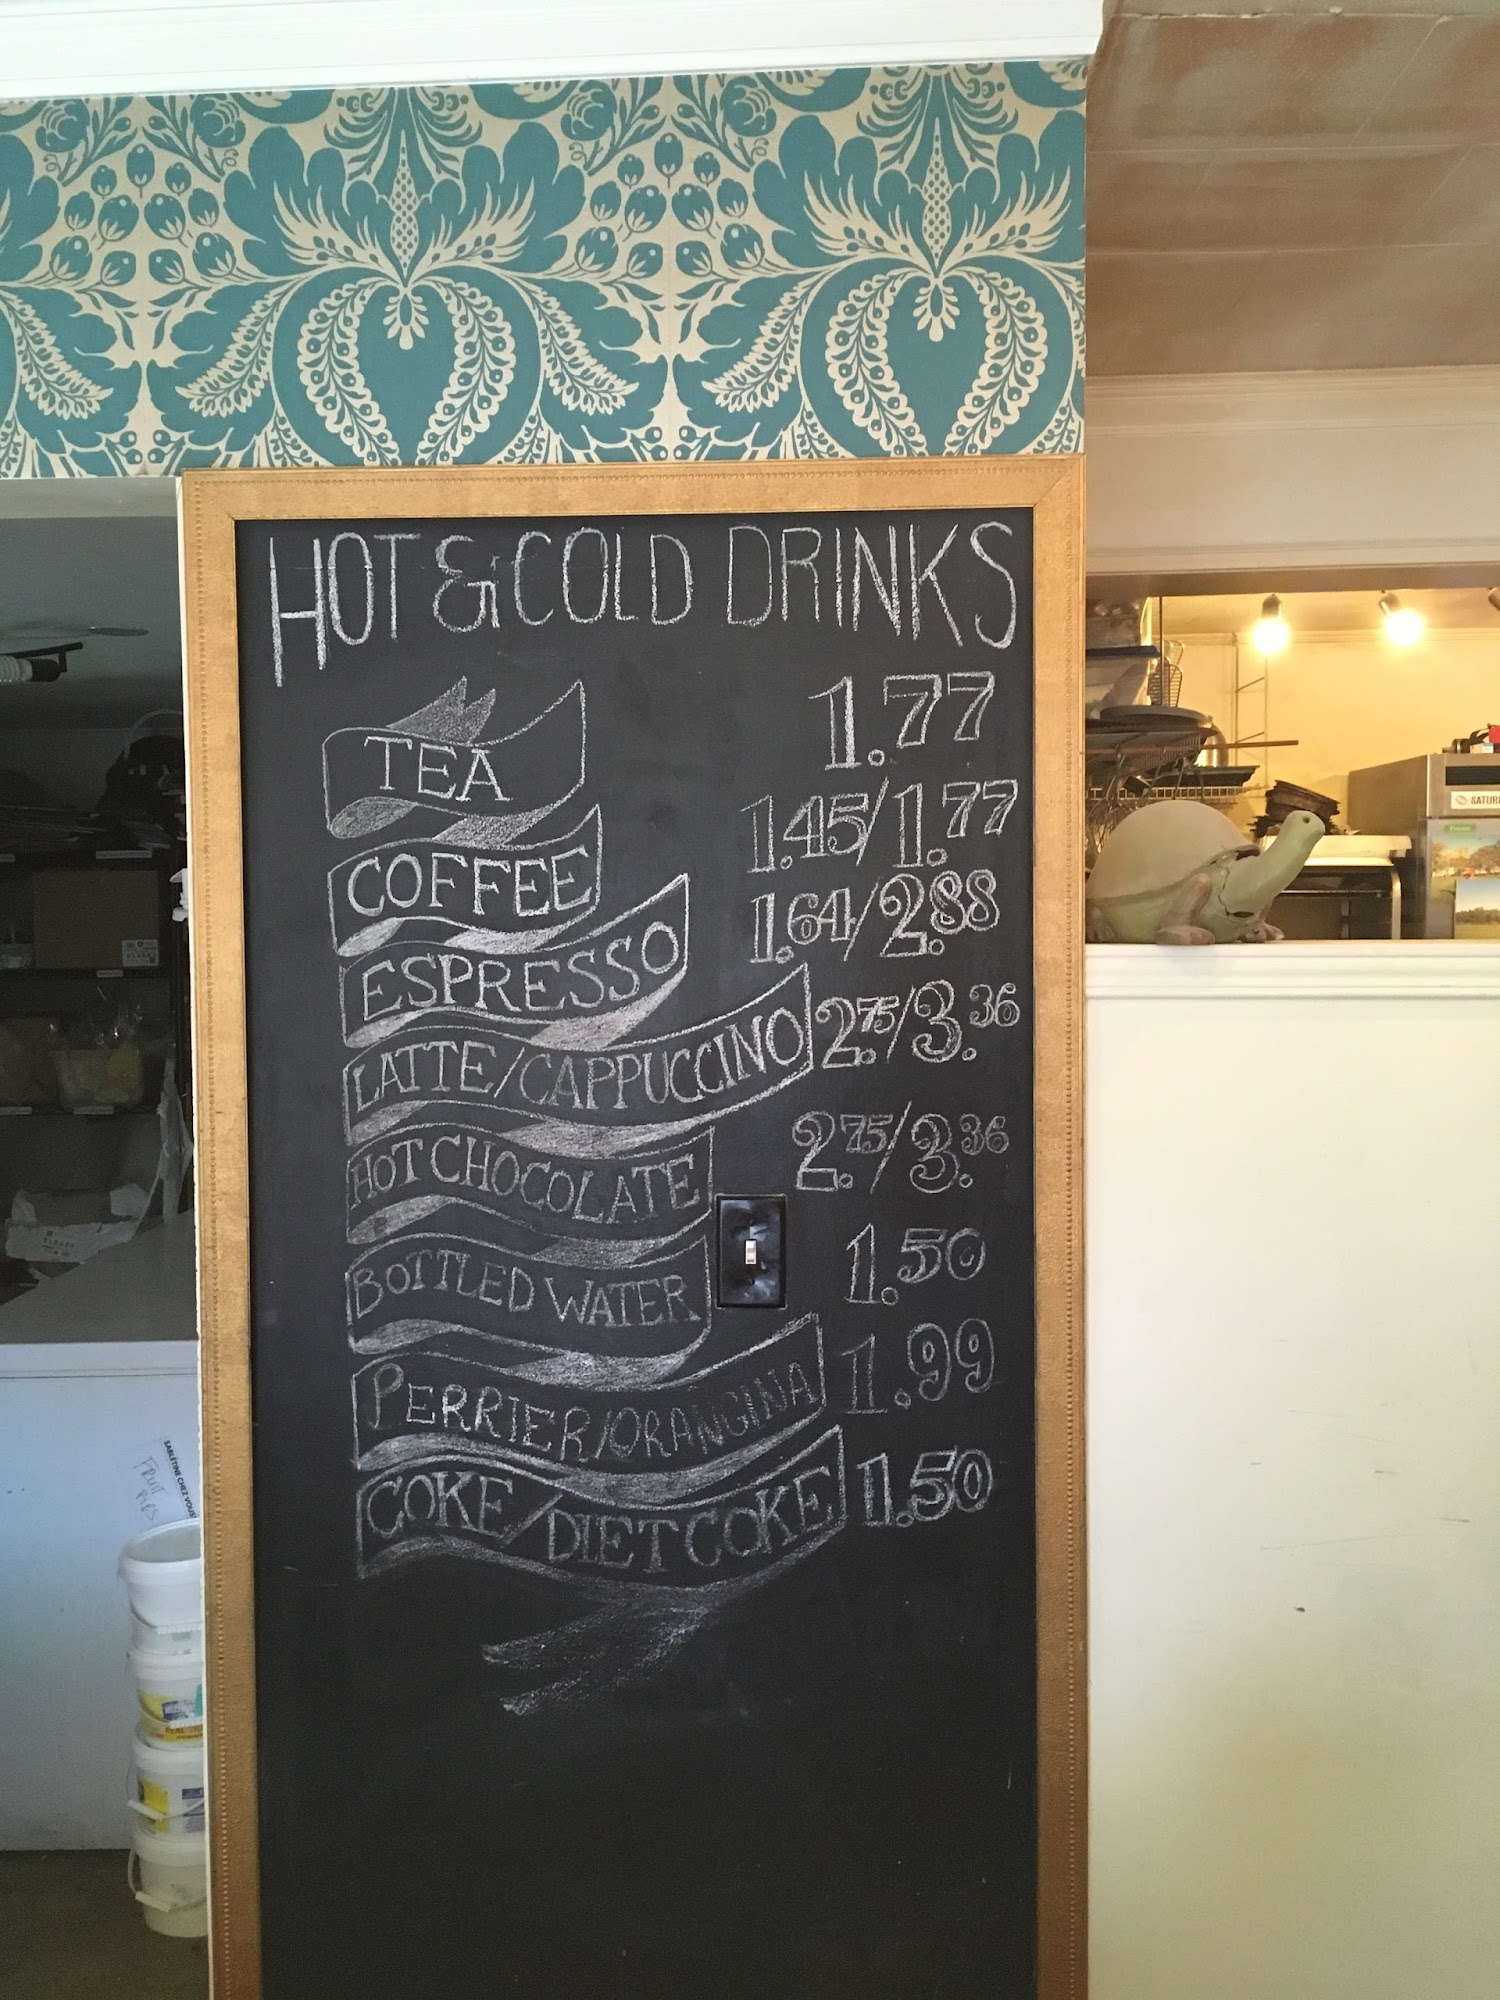 HOT & COLD DRINKS
TEA 1.77
COFFEE 1.45/1.77
ESPRESSO 1.64/2.88
LATTE/CAPPUCCINO 2.75/3.36
HOT CHOCOLATE 2.75/3.36
BOTTLED WATER 1.50
PERRIER/ORANGINA 1.99
COKE/DIET COKE 1.50
SABLÉTINE CHEZ VOUS
FRUIT